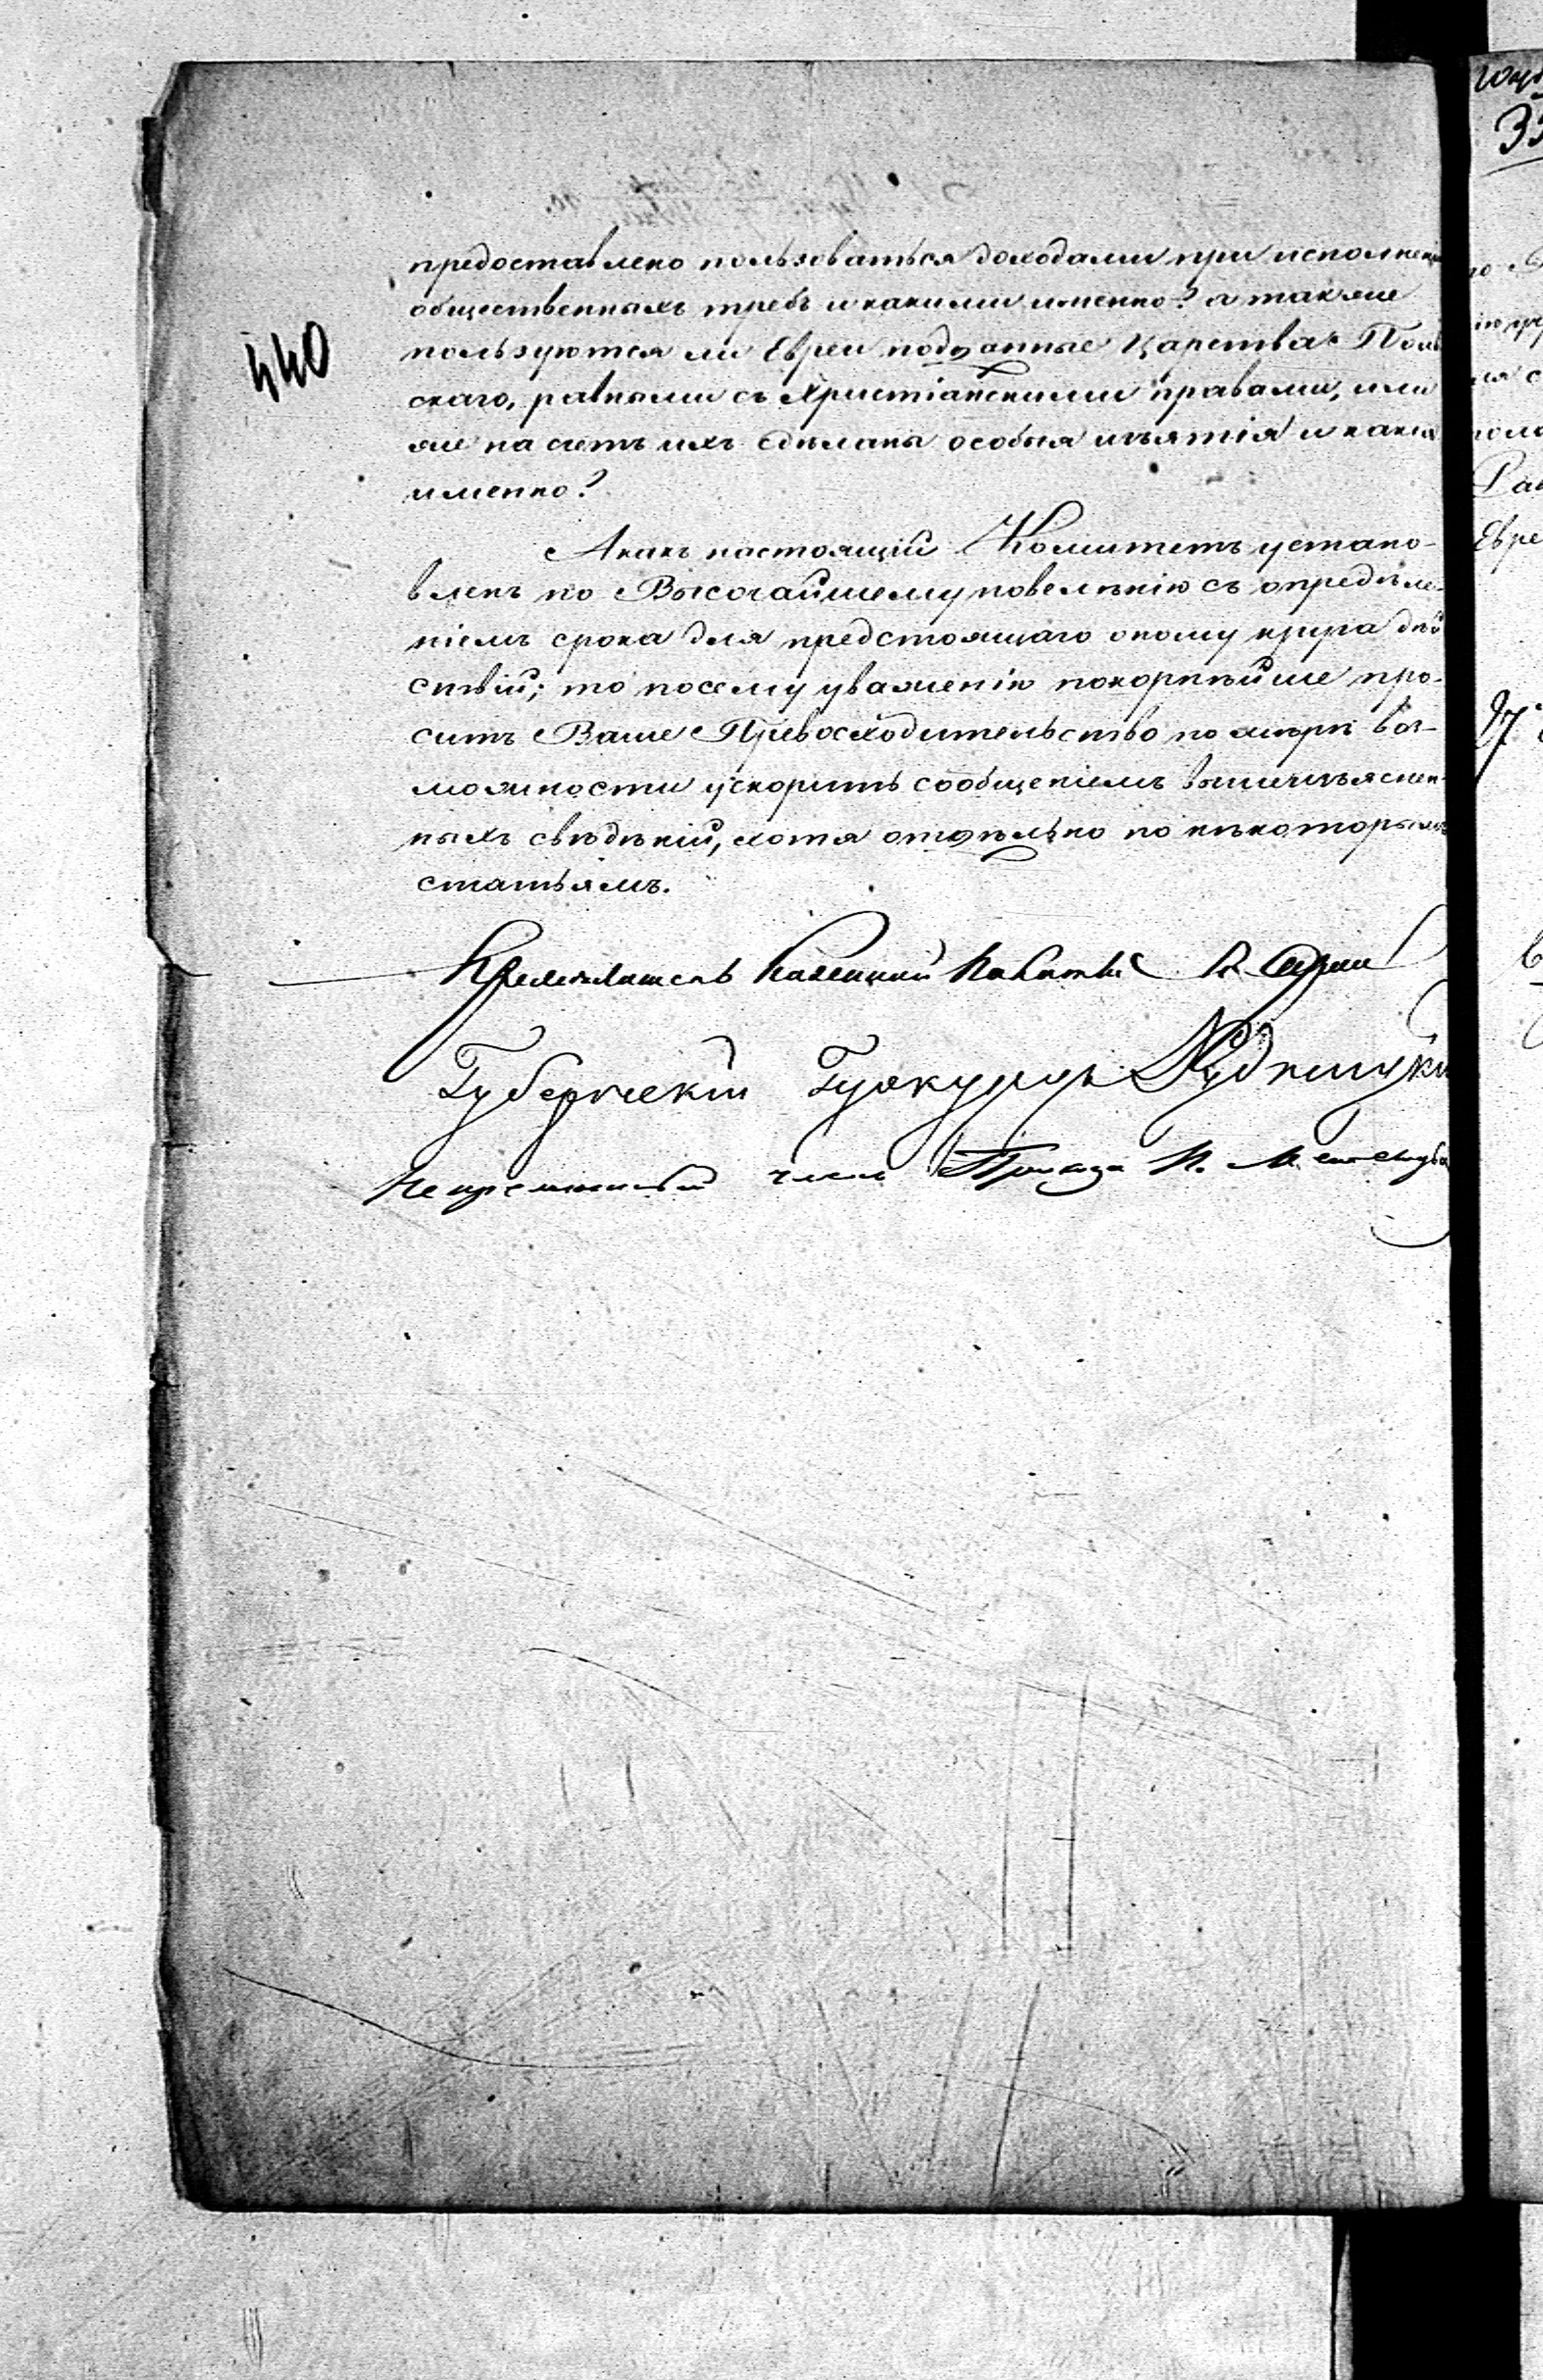 предоставлено пользоваться доходами при исполнені
общественныхъ требъ и какими именно? а также
440
пользуются ли Евреи подданные Царства Поль
скаго, равными съ Христіанскими правами, или
же на счетъ ихъ сдѣланы особыя изъятія и какія
именно?
А какъ настоящій Комитетъ устано-
вленъ по Высочайшему повелѣнію съ опредѣле-
ніемъ срока для предстоящаго оному круга дѣй
ствій; то посему уваженію покорнѣйше про-
ситъ Ваше Превосходительство по мѣрѣ воз-
можности ускорить сообщеніемъ вышеизъяснен-
ныхъ свѣдѣній, хотя отдѣльно по нѣкоторымъ
статьямъ.
Предсѣдатель Казенной Палаты
Губернскій Прокуроръ
Непремѣнный членъ Приказа